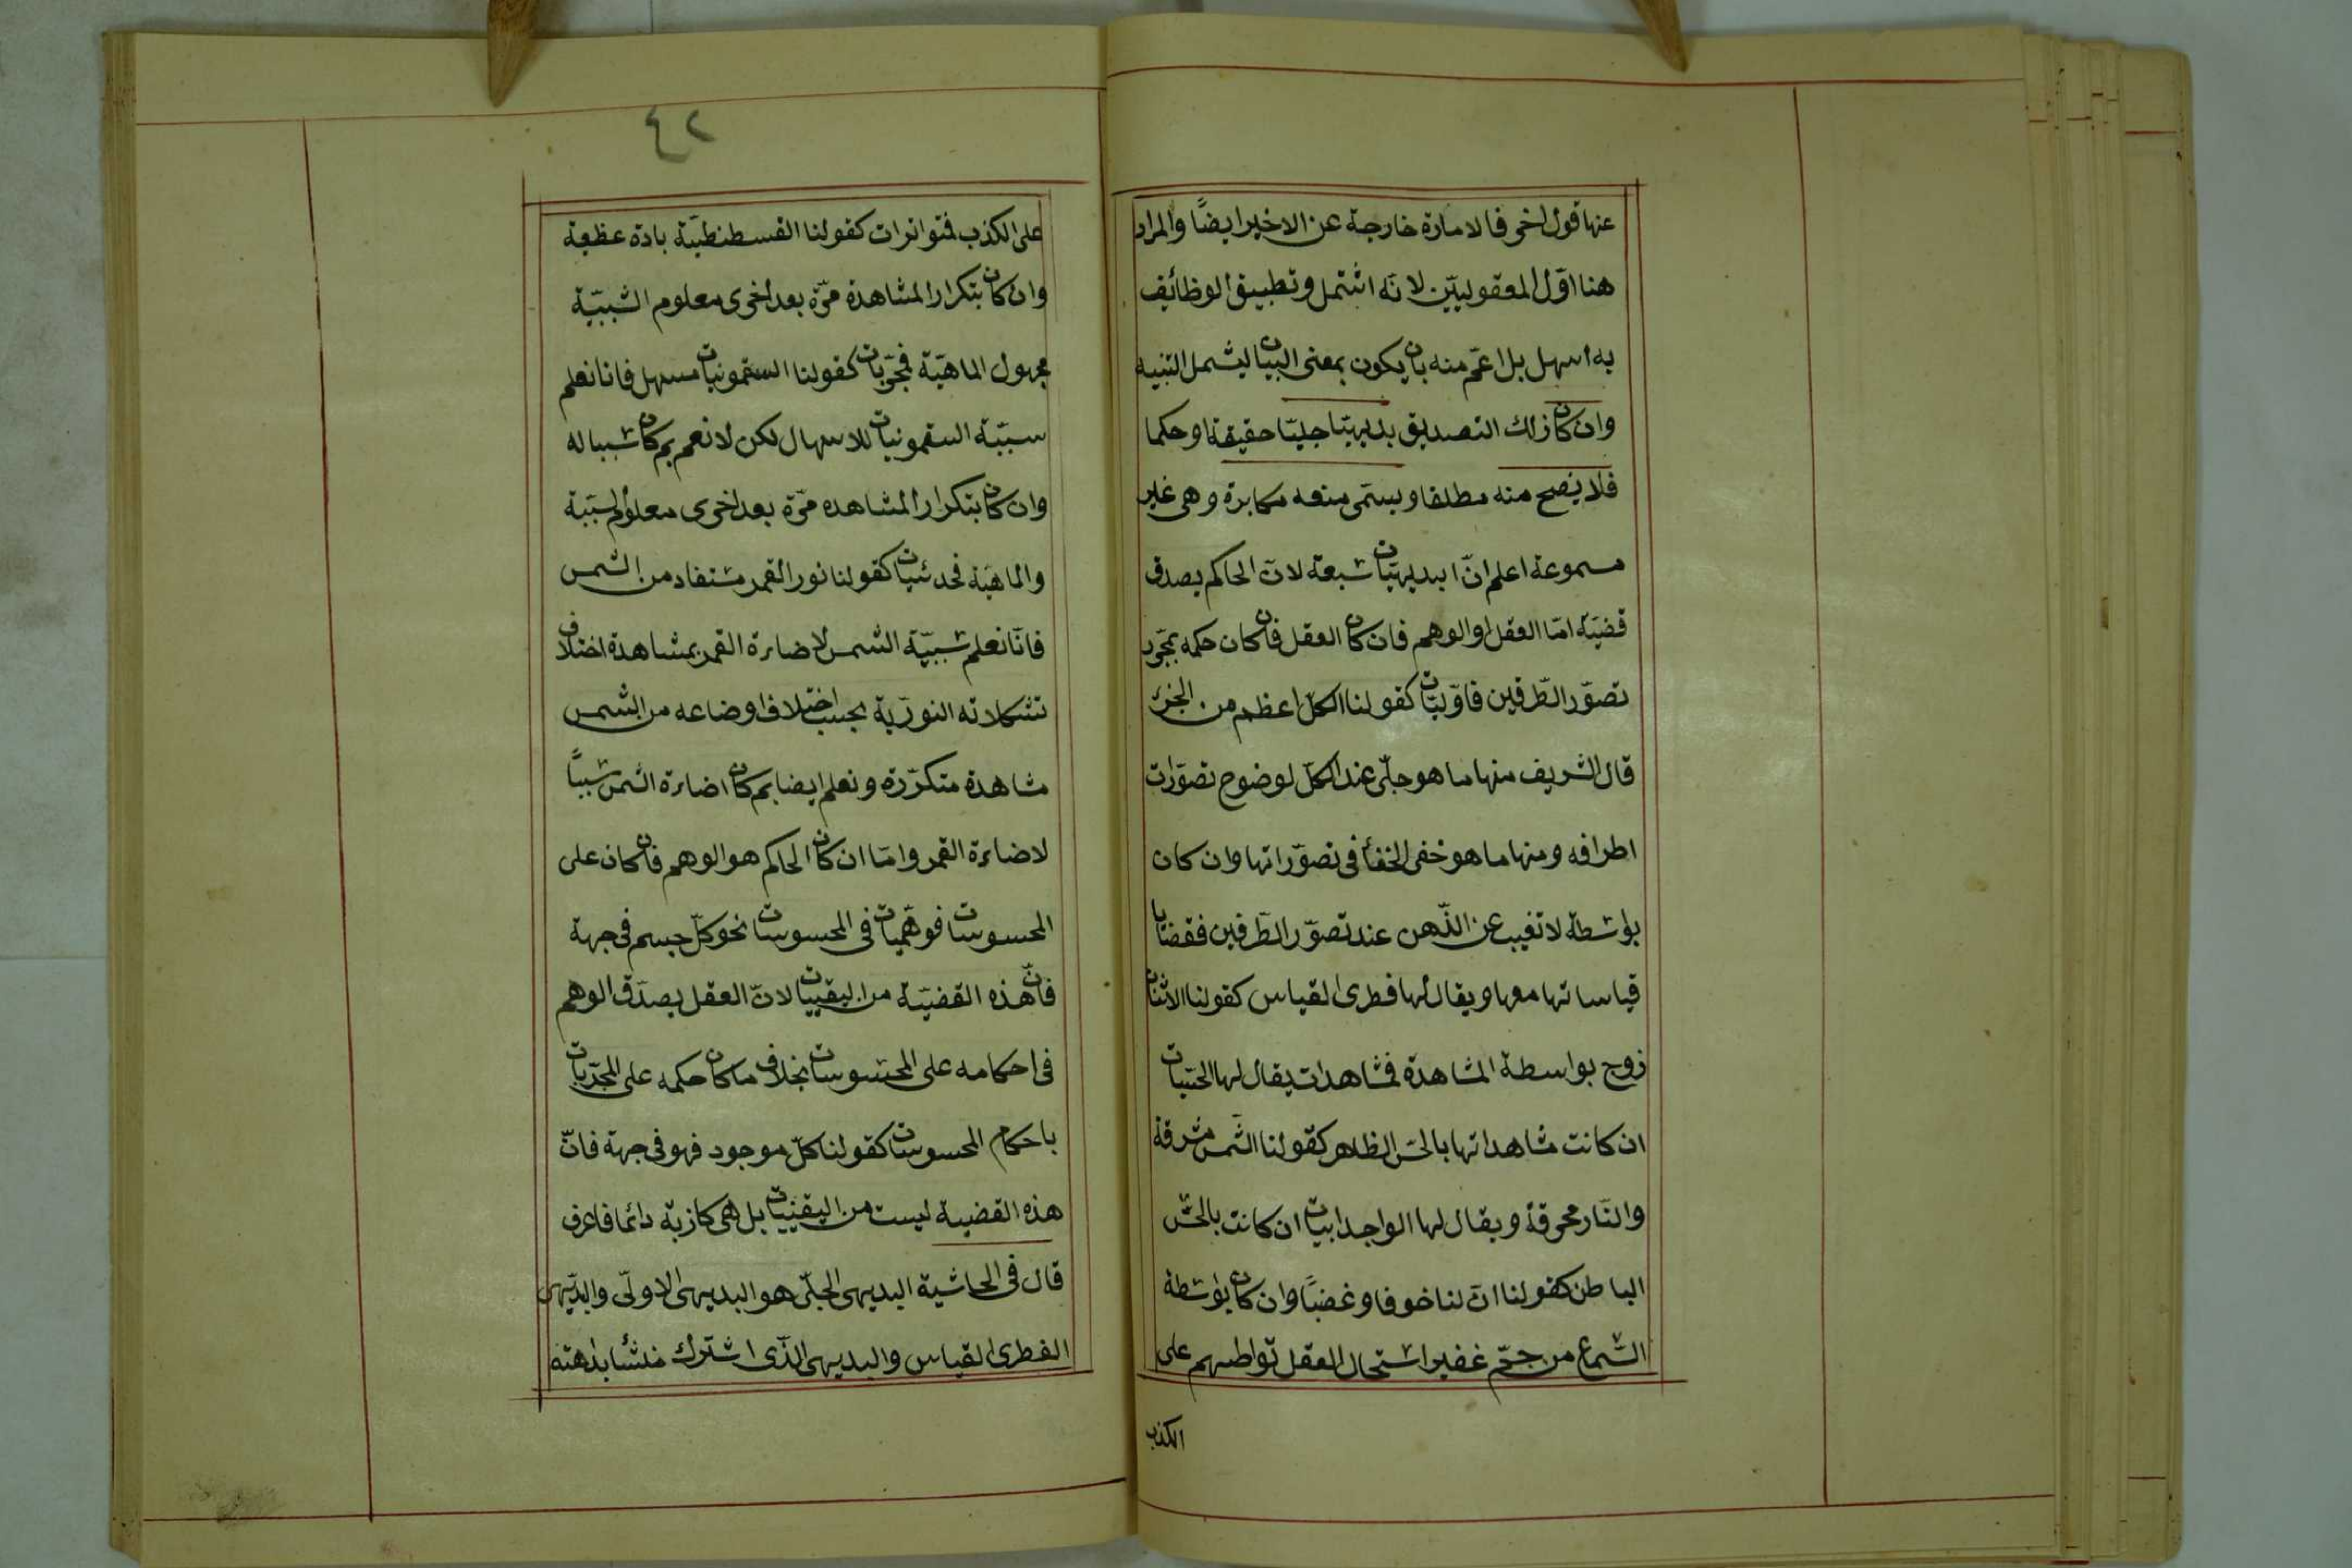 عنها قول اخر فالامارة خارجة عن الاخير ايضًا والمراد
هنا اوّل المعقوليّين لانّه اشتمل وتطبيق الوظائف
به اسهل بل اعمّ منه بان يكون بمعنى البيان ليشمل التنبيه
وان كان زلك التصديق بديهيّا جليّا حقيقة او حكما
فلا يصح منه مطلقا ويسمّى منعه مكابرة وهى غير
مسموعة اعلم انّ البديهيّات سبعة لانّ الحاكم بصدق
قضيّة امّا العقل او الوهم فان كان العقل فان كان حكمه بمجّرد
تصوّر الطّرفين فاوّليّات كقولنا الكلّ اعظم من الجزء
قال الشريف منها ما هو جلّى عند الكلّ لوضوح تصوّرات
اطرافه ومنها ما هو خفى لخفأ فى تصوّراتها وان كان
بواسطة لا تغيب عن الذّهن عند تصوّر الطّرفين فقضايا
قياساتها معها ويقال لها فطرى القياس كقولنا الاثنان
زوج بواسطة المشاهدة فمشاهدات يقال لها الحسّيات
ان كانت مشاهداتها بالحسّ الظاهر كقولنا الشّمس مشرقة
والنّار محرقة ويقال لها الواجدابيات ان كانت بالحسّ
الباطن كقولنا انّ لنا خوفا وغضبًا وان كان بواسطة
السّماع من جمّ غفير استحال العقل تواطئهم على
الكذب
٤٢
على الكذب فمتواترات كقولنا القسطنطيّة بادة عظيمة
وان كان بتكرار المشاهدة مرّة بعد اخرى معلوم السّببيّة
مجهول الماهيّة فمجّربات كقولنا السقمونيات مسهل فانا نعلم
سببيّة السقمونيات للاسهال لكن لا نعم بم كان سببا له
وان كان بتكرار المشاهده مرّة بعد اخرى معلوم السّببيّة
والماهيّة فحدسيات كقولنا نور القمر مستفاد من الشمس
فانّا نعلم سببيّة الشمس لاضاءرة القمر بمشاهدة اختلاف
تشكلاته النوريّة بحسب اختلاف اوضاعه من الشمس
مشاهدة متكرّرة ونعلم ايضا بم كان اضاءرة الشمس سببًا
لاضاءرة القمر وامّا ان كان الحاكم هو الوهم فان كان على
المحسوسات فوهّميات فى المحسوسات نحو كلّ جسم فى جهة
فانّ هذه القضيّة من اليقينيات لانّ العقل يصدّق الوهم
فى احكامه على المحسوسات بخلاف ما كان حكمه على المجرّدات
باحكام المحسوسات كقولنا كلّ موجود فهو فى جهة فانّ
هذه القضية ليست من اليقينيات بل هى كازبة دائما فاعرف
قال فى الحاشية البديهى الجلّى هو البديهى الاولّى والبدّيهى
الفطرى القياس والبديهى الّذى اشترك منشأ بداهته